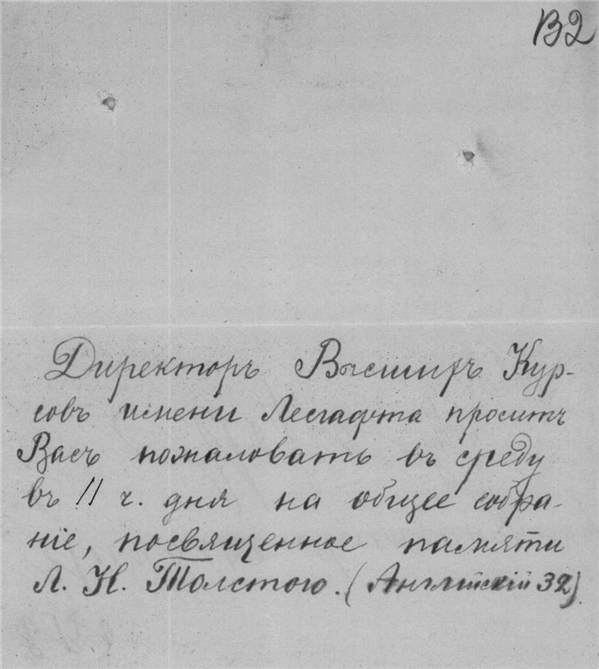 В2
Директоръ Высшихъ Кур-
совъ имени Лесгафта проситъ
Васъ пожаловать въ среду
въ 11 ч. дня на общее собра-
ніе, посвященное памяти
Л. Н. Толстого. (Англійскій 32).